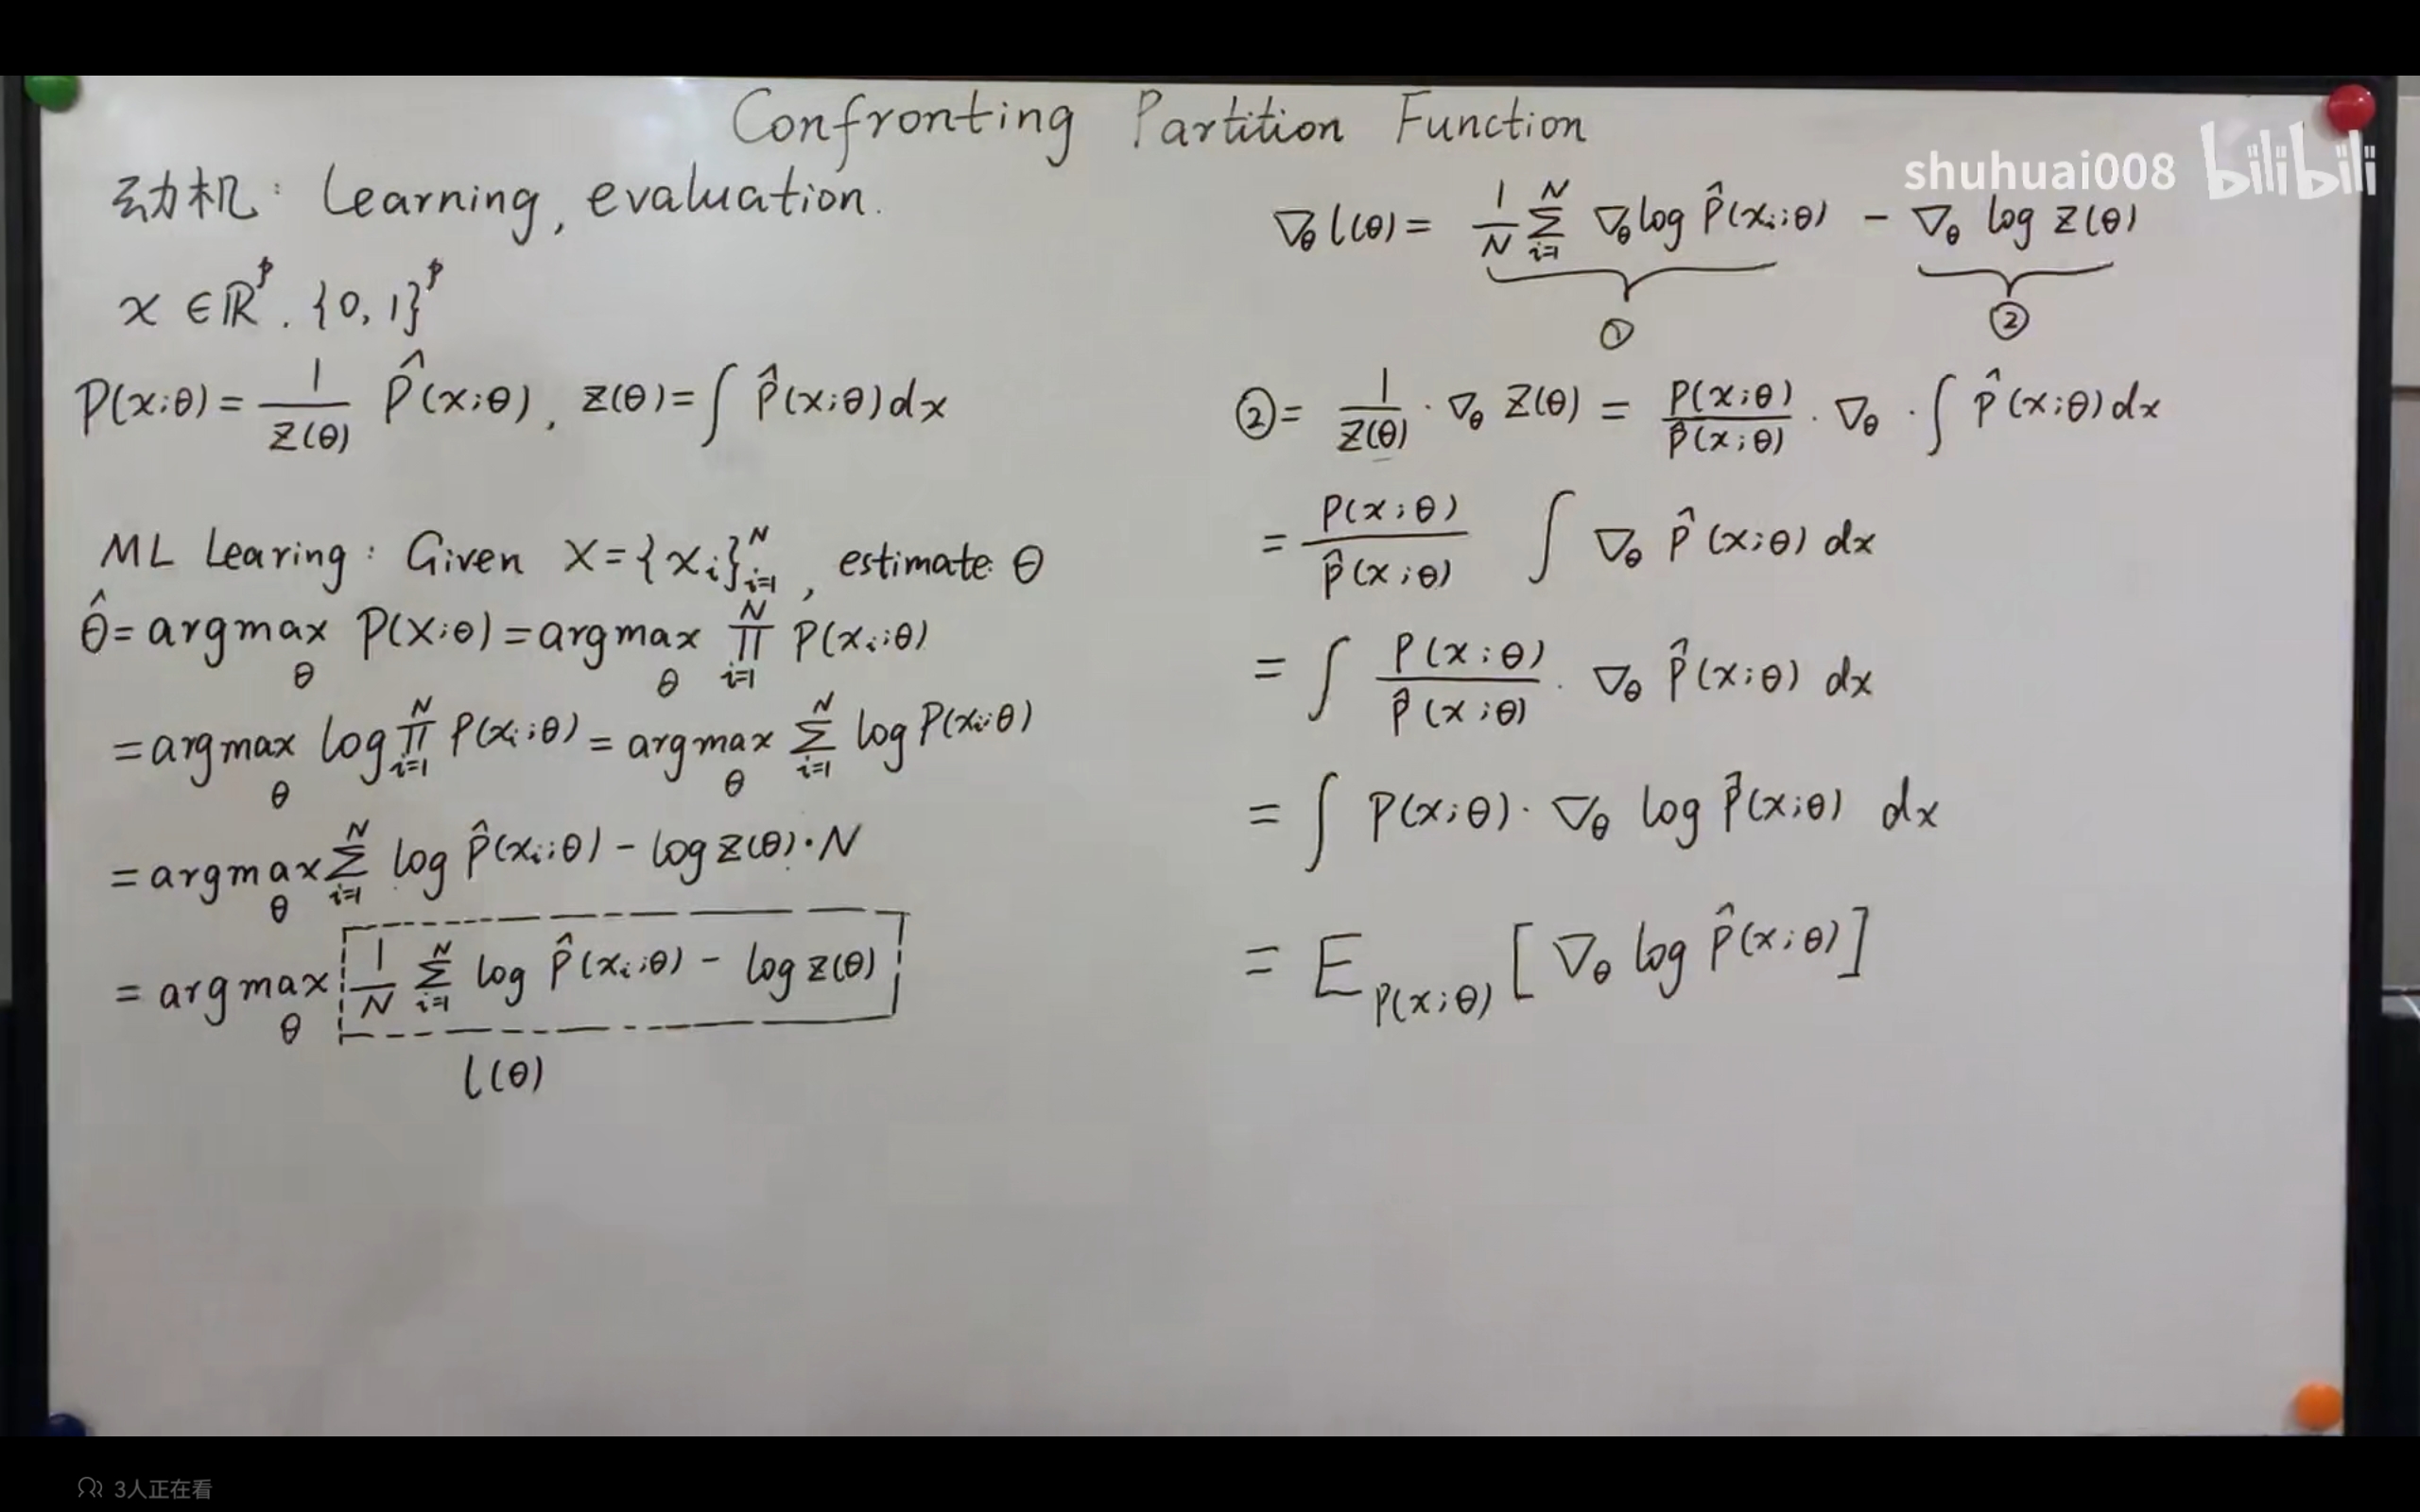 Confronting Partition Function
shuhuai008 bilibili
动机: Learning, evaluation.
x ∈ ℝ^p, {0, 1}^p
P(x;θ) = 1/Z(θ) P̂(x;θ), Z(θ) = ∫ P̂(x;θ) dx
ML Learing: Given X = {x_i}_{i=1}^N, estimate θ
θ̂ = argmax_θ P(X;θ) = argmax_θ ∏_{i=1}^N P(x_i;θ)
= argmax_θ log ∏_{i=1}^N P(x_i;θ) = argmax_θ ∑_{i=1}^N log P(x_i;θ)
= argmax_θ ∑_{i=1}^N log P̂(x_i;θ) − log Z(θ)·N
= argmax_θ 1/N ∑_{i=1}^N log P̂(x_i;θ) − log Z(θ)
l(θ)
∇_θ l(θ) = 1/N ∑_{i=1}^N ∇_θ log P̂(x_i;θ) − ∇_θ log Z(θ)
① ②
② = 1/Z(θ) · ∇_θ Z(θ) = P(x;θ)/P̂(x;θ) · ∇_θ · ∫ P̂(x;θ) dx
= P(x;θ)/P̂(x;θ) ∫ ∇_θ P̂(x;θ) dx
= ∫ P(x;θ)/P̂(x;θ) · ∇_θ P̂(x;θ) dx
= ∫ P(x;θ) · ∇_θ log P̂(x;θ) dx
= E_{P(x;θ)} [∇_θ log P̂(x;θ)]
3人正在看